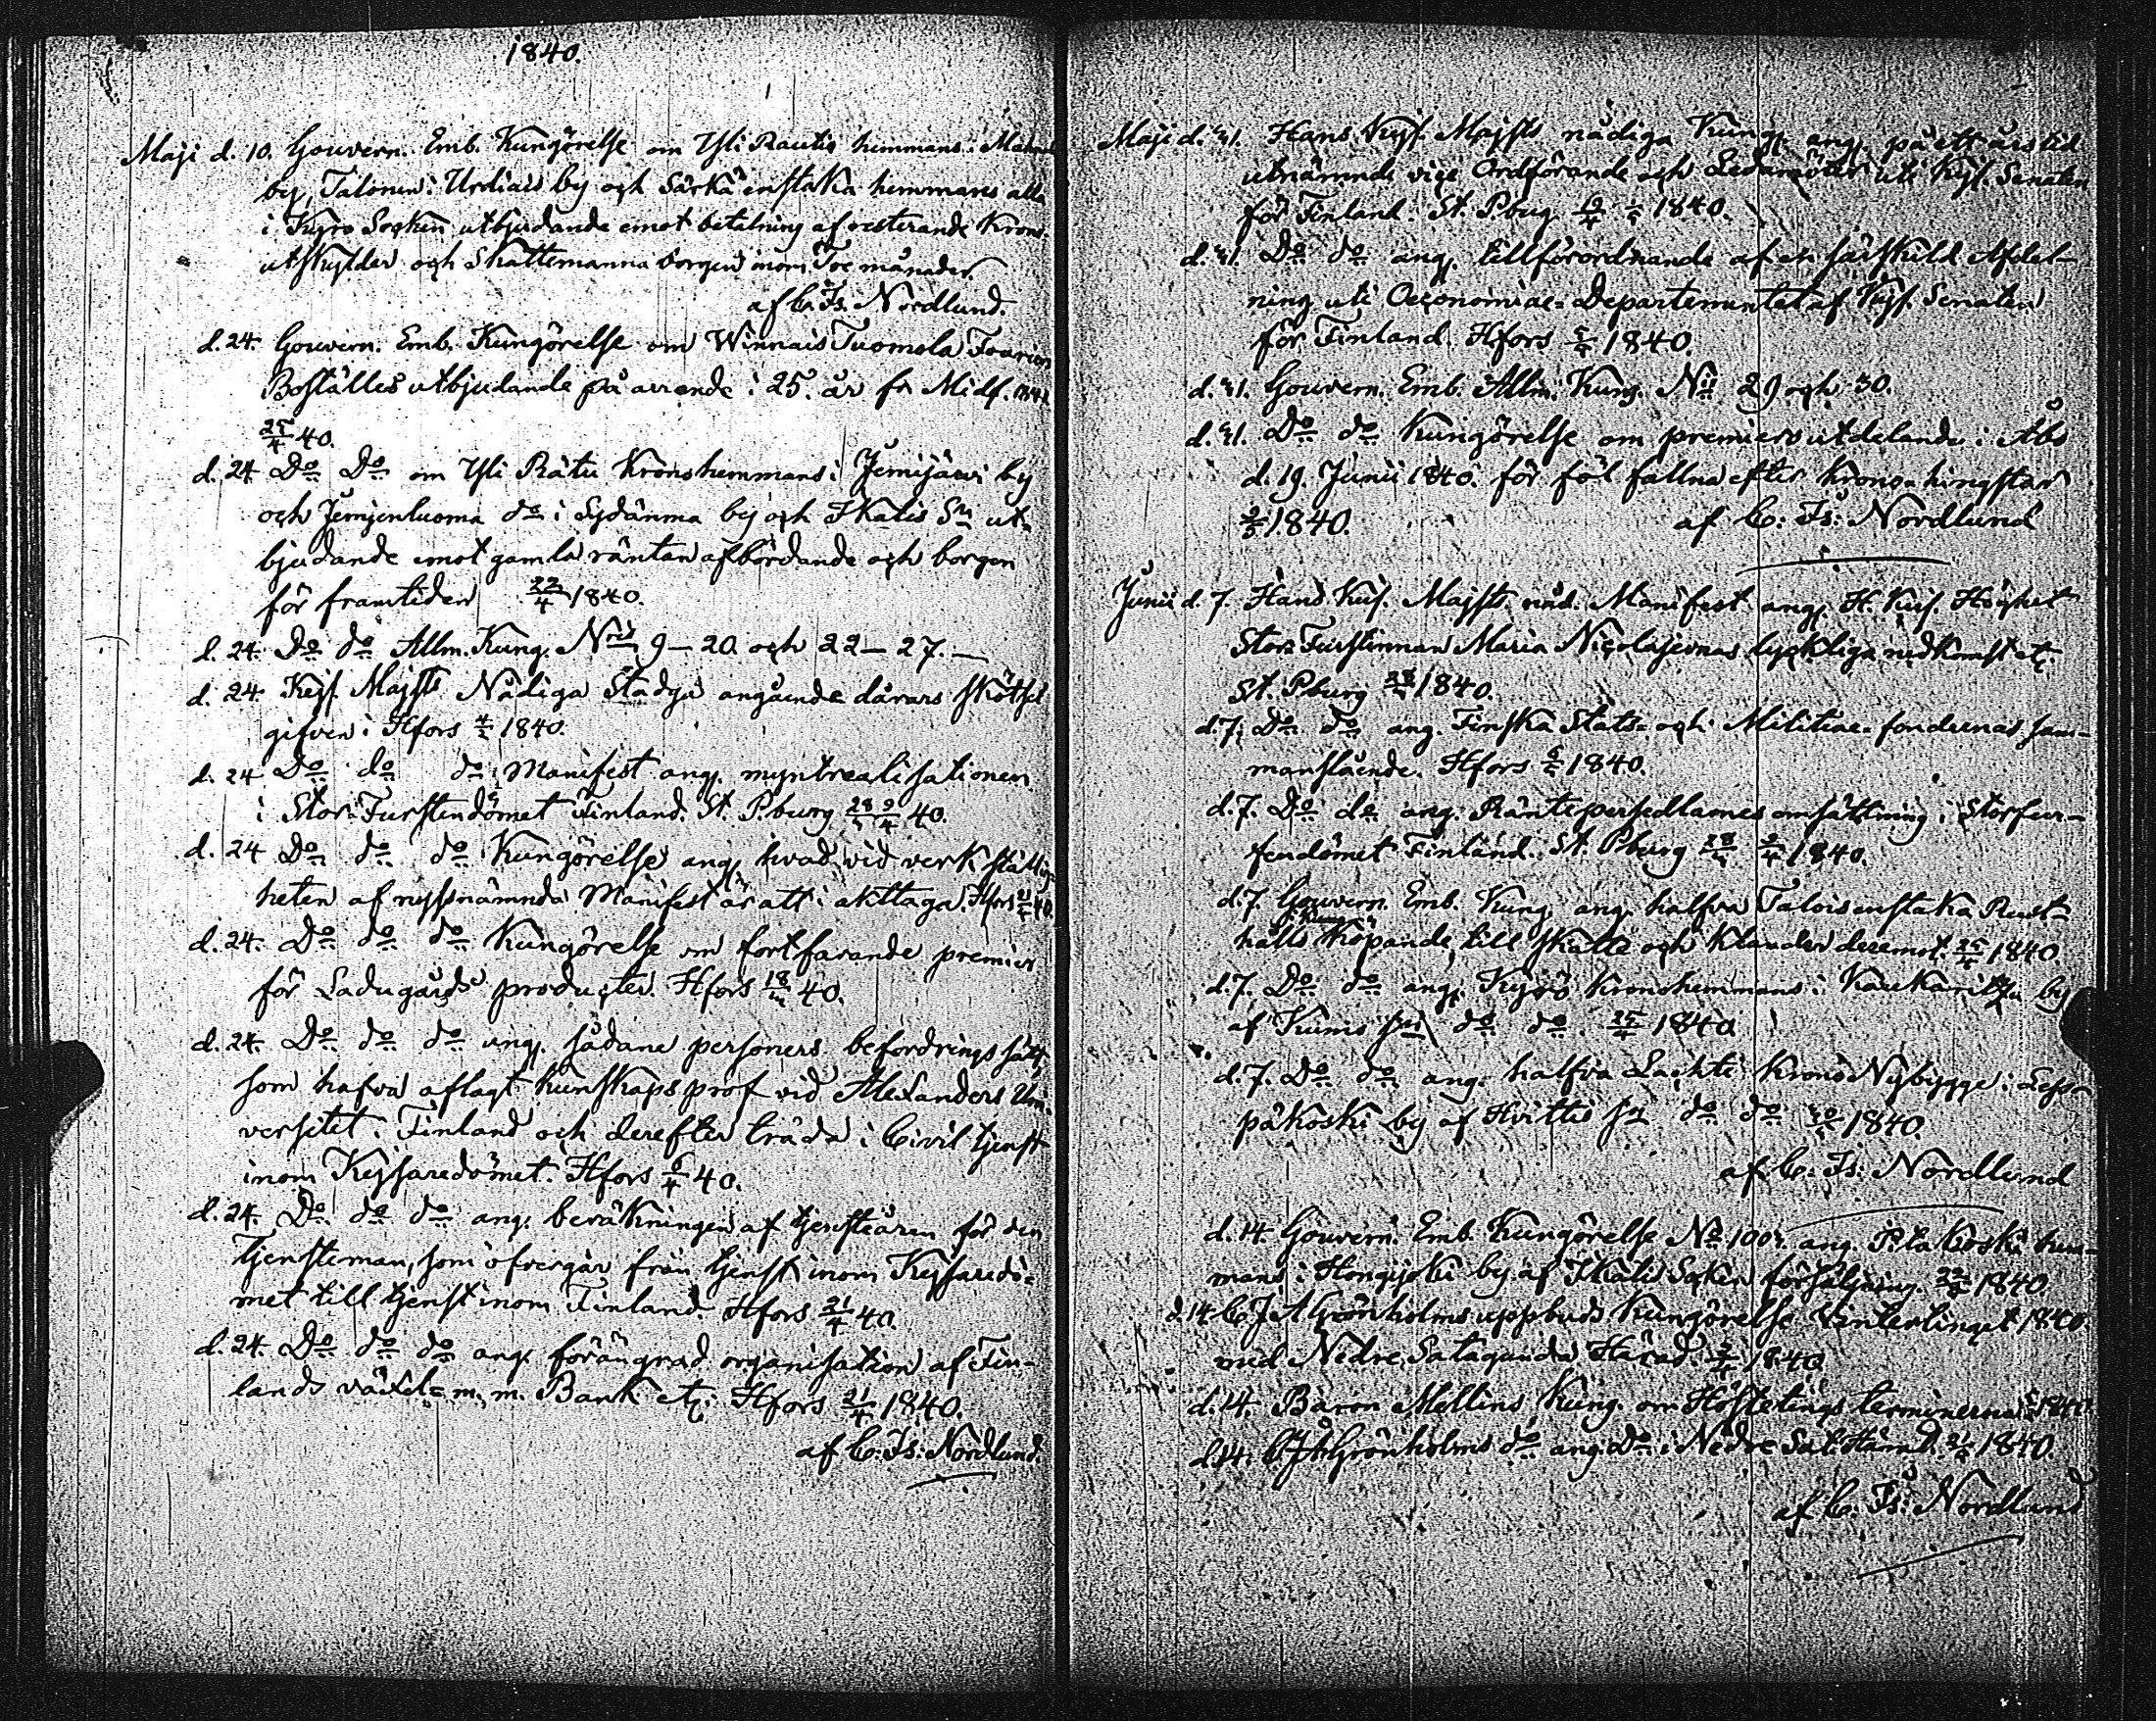 1840.
Maji d. 10. Gouvern. Emb. Kungörelse om Yli Rautio hemmans i
by, Talonen i Urdiais by och Särkä enstaka hemmans alla
i Kyro Socken utbjudande emot betalning af resterande Krono-
utskylder och Skattemanna borgen inom Tre månader
af C: Fr: Nordlund.
d. 24. Gouvern. Emb. Kungörelse om Winnais Tuomola
Boställes utbjudande på arrende i 25 år fr Midf. 1841
25/4 40.
d. 24 Do Do om Yli Rätu Kronohemmans i Jemijärvi by
och Jemjenluoma do i Sydänma by och Ikalis Sn ut-
bjudande emot gamla räntan afbördande och borgen
för framtiden 22/4 1840.
d. 24. Do do Allm. Kung. Nris 9–20 och 22–27.–
d. 24 Kejs. Majsts Nådiga Stadga angående dårars skötsel
gifven i Hfors 1840.
d. 24 Do do do Manifest ang. myntrealisationen
i Stor-Furstendömet Finland. St. P.burg 28/3 9/4 40.
d. 24 Do do do Kungörelse ang. hvad vid verkställig-
heten af nyssnämnda Manifest är att i akttaga. Hfors 21/4 40.
d. 24. Do do do Kungörelse om fortfarande premier
för Ladugårds producter. Hfors 18/3 40.
d. 24. Do do do ang. sådane personers befordrings sätt,
som hafva aflagt kunskaps prof vid Alexanders Uni-
versitet i Finland och derefter träda i Civil tjenst
inom Kejsaredömet. Hfors 6/4 40.
d. 24. Do do do ang. beräkningen af tjensteåren för den
tjensteman, som öfvergår från tjenst inom Kejsaredö-
met till tjenst inom Finland. Hfors 21/4 40.
d. 24. Do do do ang. förängrad organisation af Fin-
lands växel- m. m. Bank etc. Hfors 21/4 1840.
af C: Fr: Nordlund.
Maji d. 31. Hans Kejs. Majsts nådiga Kung. ang. på ett års tid
utnämnde vice Ordförande och Ledamöter uti Kejs. Senaten
för Finland. St. Pburg 1840.
d. 31. Do do ang. tillförordnande af en särskild Afdel-
ning uti Oeconomiae-Departementet af Kejs. Senaten
för Finland. Hfors 1840.
d. 31. Gouvern. Emb. Allm. Kung. No 29 och 30.
d. 31. Do do Kungörelse om premiers utdelande i Åbo
d. 19. Junii 1840. för föl fallna efter Krono-hingstar
1840. af C: Fr: Nordlund
Junii d. 7. Hans Kejs. Majsts nåd. Manifest ang. H. Kejs. Höghet
Stor-Furstinnan Maria Nicolajevnas lyckliga nedkomst etc.
St. Pburg 1840.
d. 7. Do do ang. Finska Stats- och Militiae-fondernas sam-
manslående. Hfors 1840.
d. 7. Do do ang. Räntepersedlarnes omsättning i Storfur-
stendömet Finland. St. Pburg 28/3 9/4 1840.
d. 7. Gouvern. Emb. Kung. ang. halfva Talois enstaka Rust-
hålls köpande till skatte och klander deremot. 25/4 1840.
d. 7. Do do ang. Kyrö Kronohemmans i by
af Kumo sn do do 25/4 1840
d. 7. Do do ang. halfva Lachti Krono Nybygge i
påkoski by af Hvittis sn do do 1840.
af C: Fr: Nordlund
d. 14. Gouvern. Emb. Kungörelse No ang. hem-
mans i Hongijoki by af Ikalis Socken försäljning. 1840.
d. 14 C J A Grönholms uppbuds Kungörelse Vintertinget 1840.
med Nedre Satagunda Härad. 1840
d. 14. Baron Mellins Kung. om Höstetings terminerna 1840
d. 14. C J A Grönholms do ang. do i Nedre Sat. Härad. 1840.
af C: Fr: Nordlund